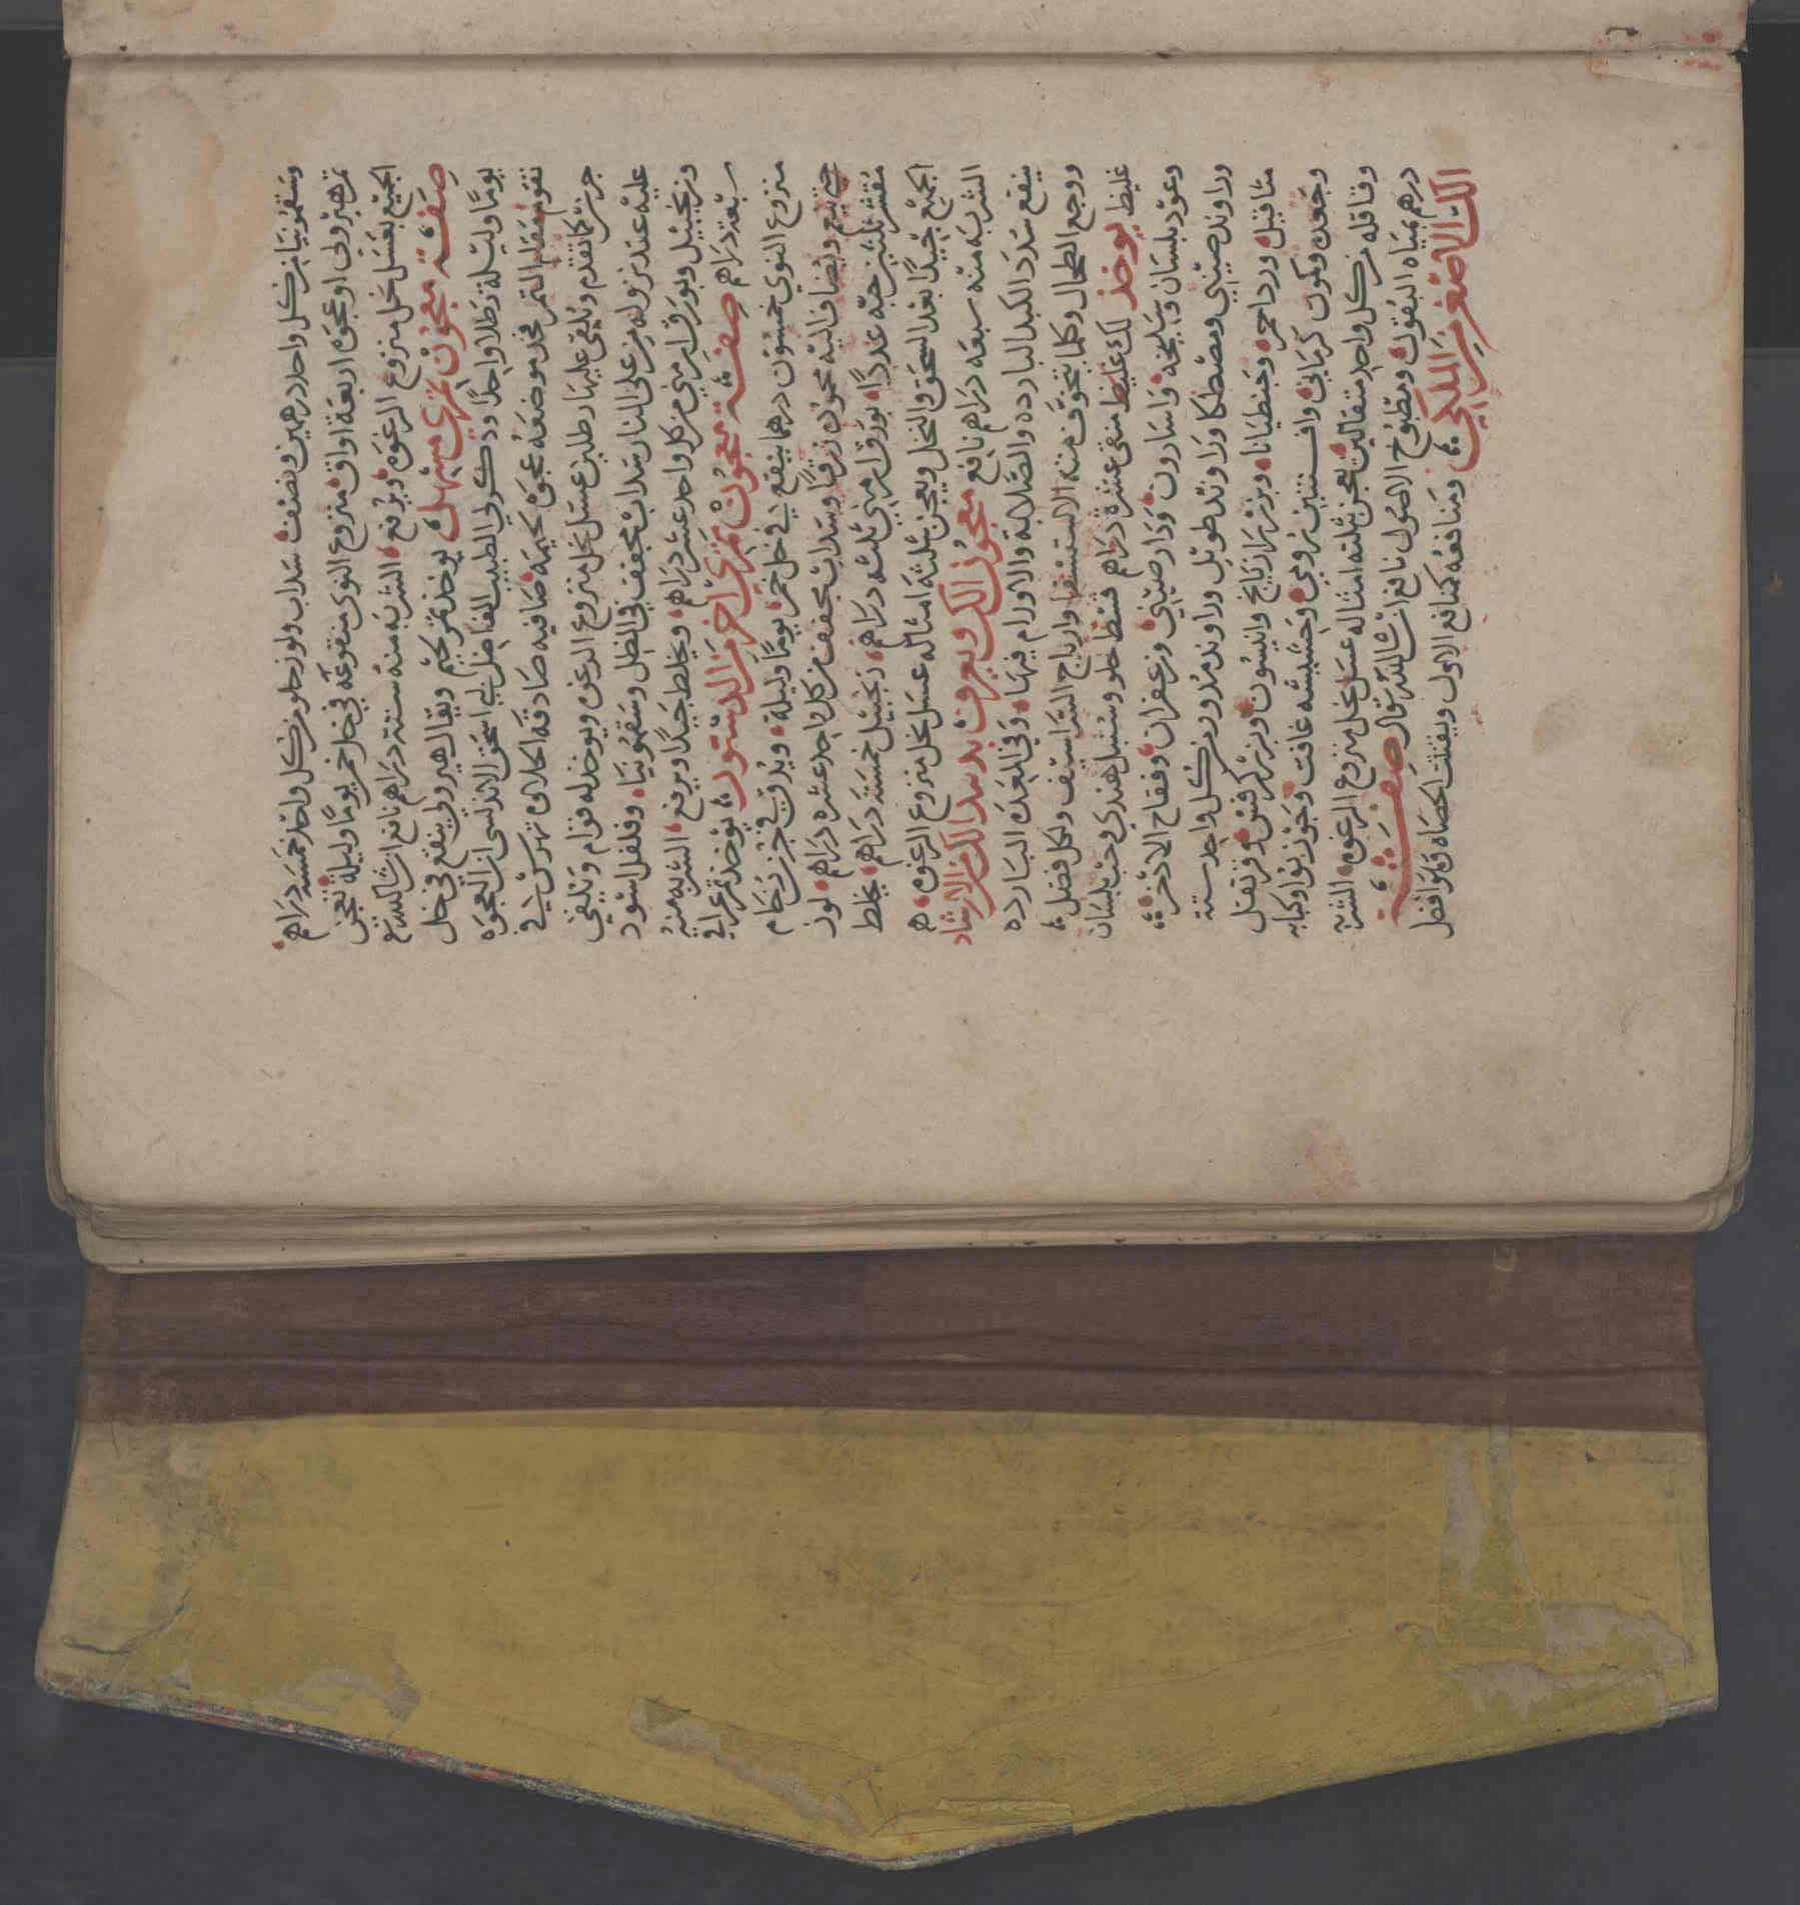 وسقمونيا من كل واحد درهمين ونصف سداب ولوز حلو من كل واحد خمسة دراهم
تمر هيرون او عجوه اربعة اواق منزوع النوى منقوعه في خل خمر يوما وليلة تعجن
الجميع بعسل نحل منزوع الرغوه ويرفع الشربه منه ستة دراهم نافع ان شا الله تع
صفة معجون تمري مسهل يوخذ تمر لحيم ويقال هيرون ينقع في خل
يوما وليلة رطلا واحدا وذكر لي الطبيب الفاضل ابي اسحق الاندلسي ان العجوه
تقوم مقام التمر فخذ موضعه عجوة لحيمه صافيه صادقة الحلاوه تهرس في
جرن كما تقدم ويلقي عليها رطلين عسل نحل منزوع الرغوه ويوخذ له قوام ويلقي
عليه عند نزوله من على النار سداب مجفف في الظل وسقمونيا وفلفل اسود
وزنجبيل وبورق ارمني من كل واحد عشر دراهم ويخلط جيدا ويرفع الشربه منه
سبعة دراهم صفة معجون تمري اخر من الدستور يوخذ تمر عراقي
منزوع النوي خمسون درهما ينقع في خل خمر يوما وليلة ويدق في جرن رخام
حتى ينعم ويضاف اليه محموده زرقا وسداب مجفف من كل واحد عشره دراهم لوز
مقشر ثلثين حبه عددا بورق ارمني ثلثه دراهم زنجبيل خمسة دراهم يخلط
الجميع جيدا بعد السحق والنخل ويعجن بثلثة امثاله عسل نحل منزوع الرغوه
الشربه منه سبعه دراهم نافع معجون الك ويعرف بدبيد الك من الارشاد
ينفع سدد الكبد البارده والصلابة والاورام فيها وفي المعدة البارده
ووجع الطحال وكلما يتخوف منه الاستسقا وارياح الشراسيف ولكل فضل
غليظ يوخذ لك غليظ منقى عشرة دراهم قسط حلو وسنبل هندي وحب بلسان
وعود بلسان وسليخه واسارون ودار صيني وزعفران وفقاح الاذخر
وراوند صيني ومصطكا وراوند طويل وراوند مدور من كل واحد ستة
مثاقيل ورد احمر وجنطيانا وبزر رازيانج وانيسون وبزر كرفس وقرنفل
وجعده وكمون كرماني وافسنتين رومي وحشيشه غافت وجوز بوا وكبابه
وقاقله من كل واحد مثقالين يعجن بثلثه امثاله عسل نحل منزوع الرغوه الشربه
درهم بمياه البقول ومطبوخ الاصول نافع ان شا الله تعال صفة
الك الاصغر من الملكي ومنافعه كمنافع الاول ويفتت الحصاه